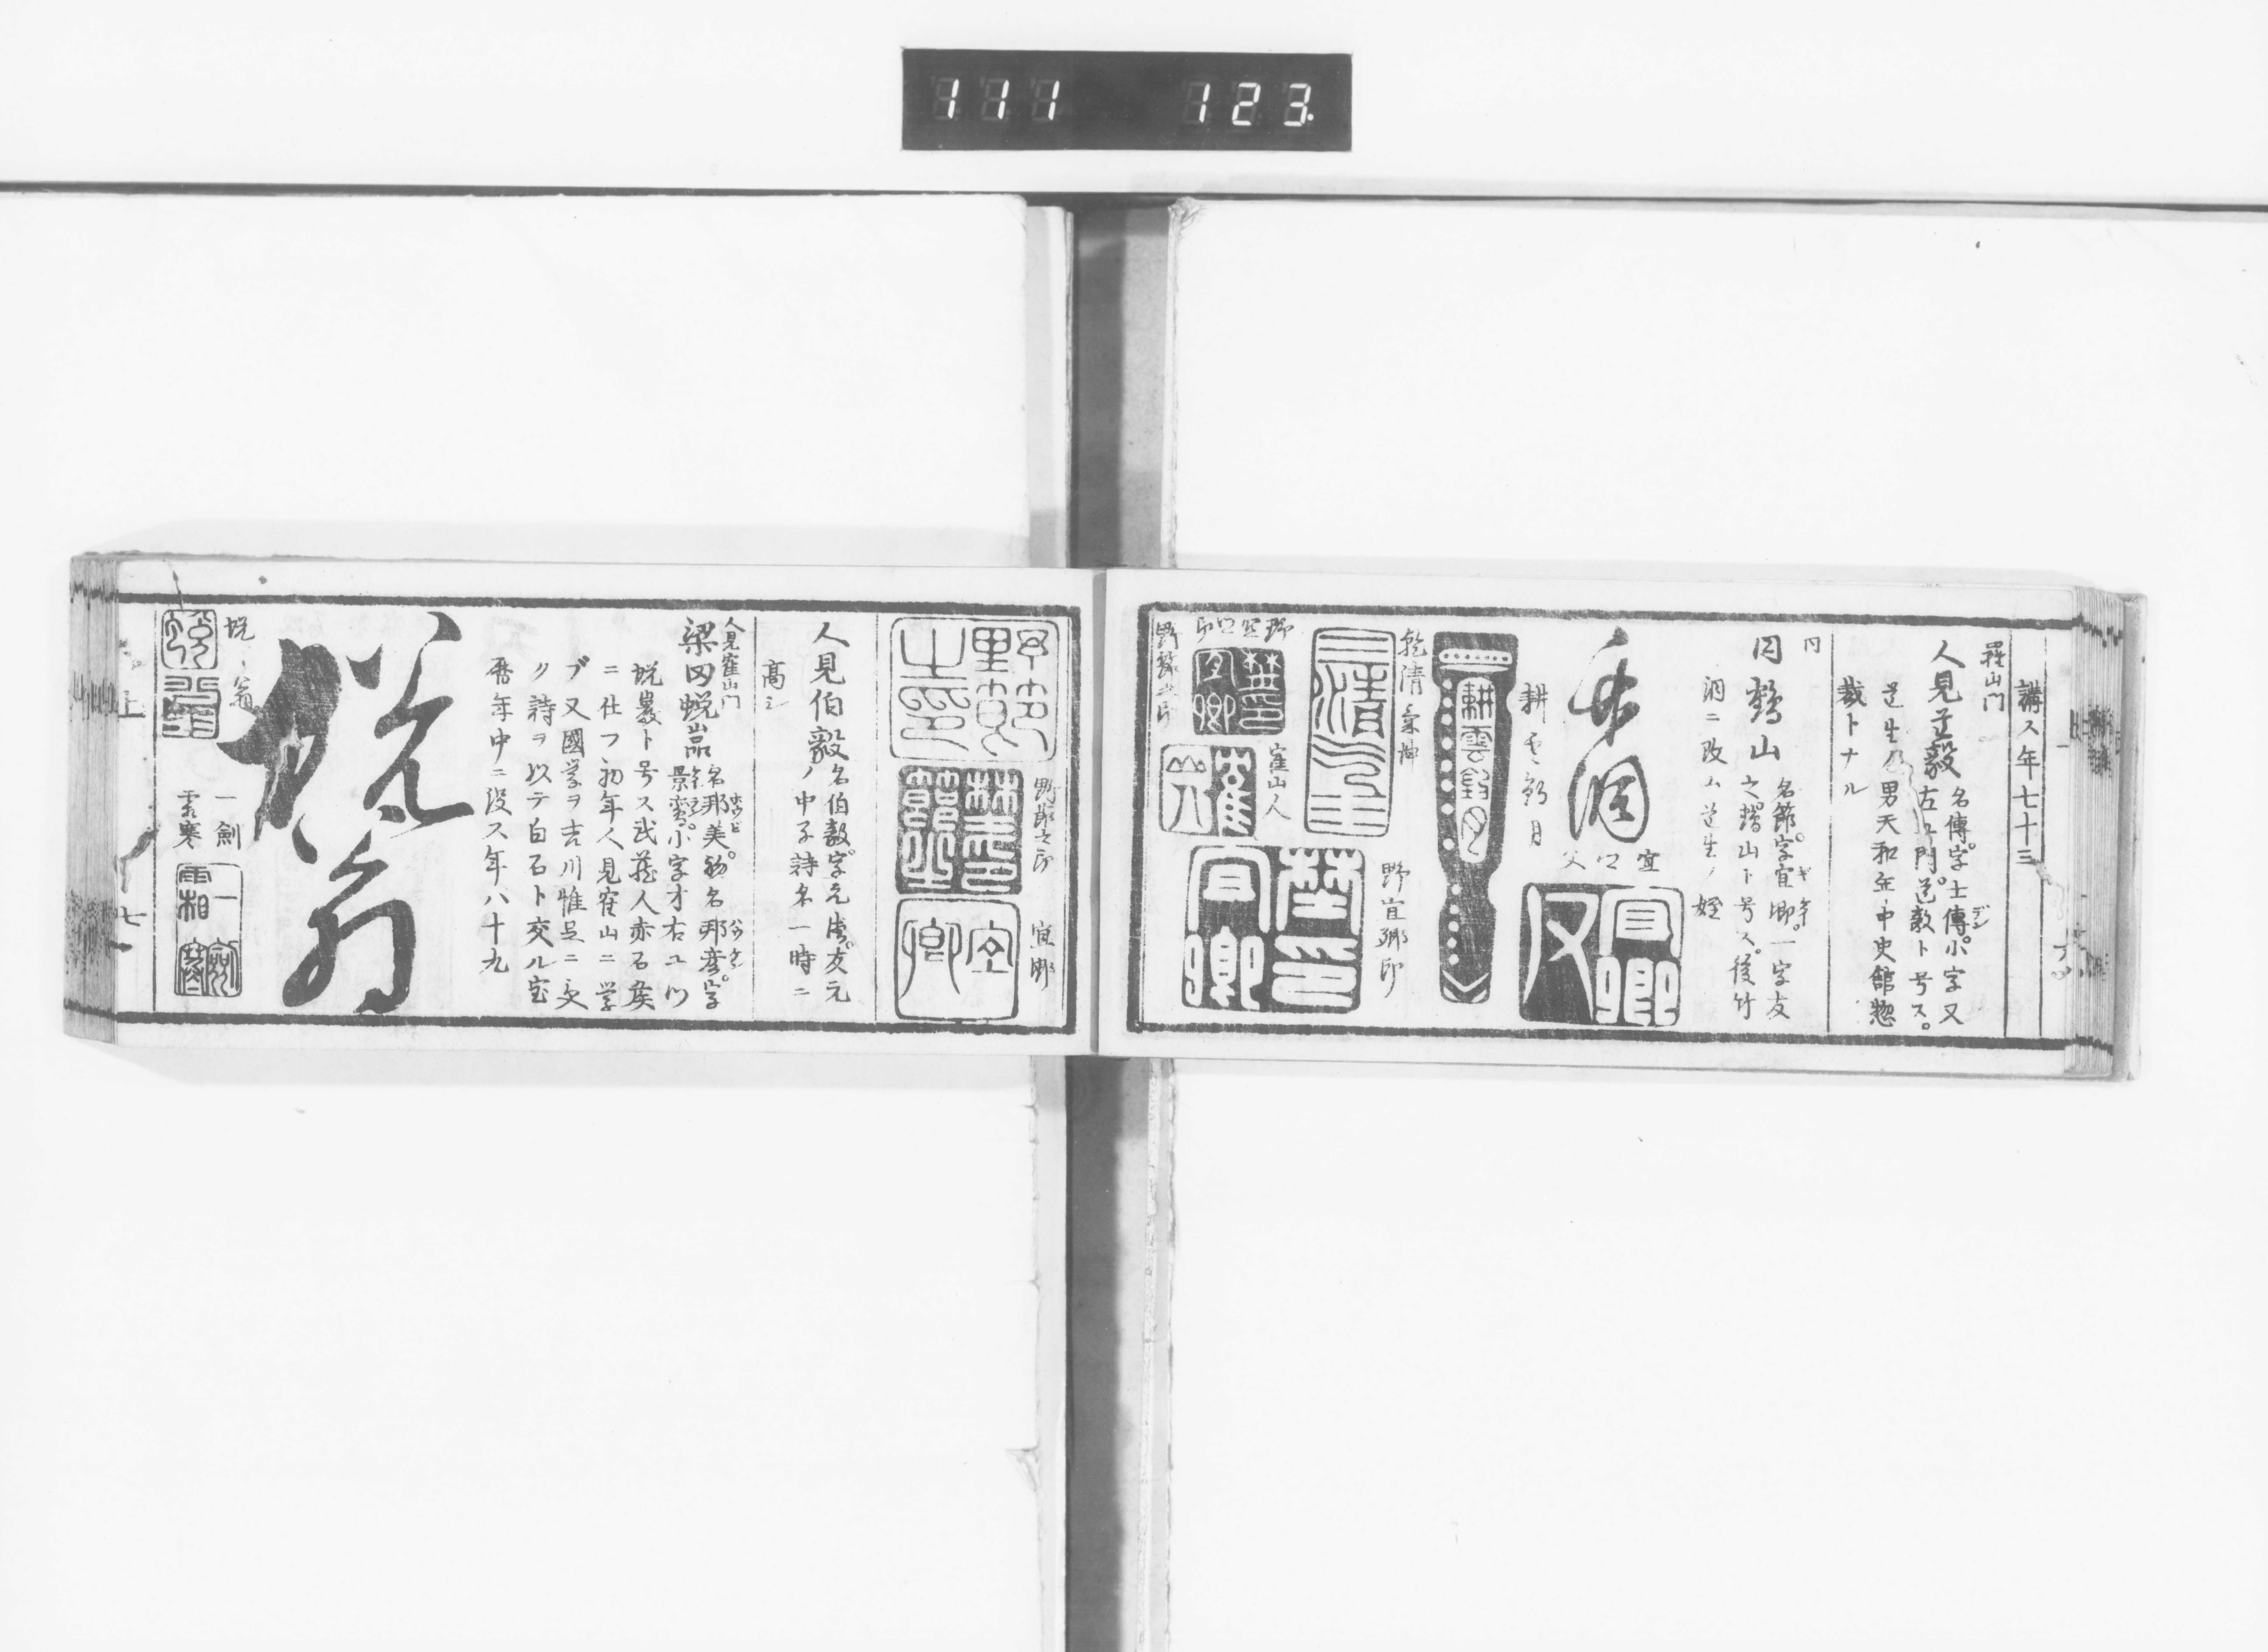 111 123
講ス年七十三
羅山門
人見道毅 名傳。字士傳。小字又
左ヱ門。道毅ト号ス。
道生ノ男天和年中史館惣
裁トナル
同
同鶴山 名節。字宜卿。一字友
之。鶴山ト号ス。後竹
洞ニ改ム道生ノ姪
竹洞
宜卿父
耕雲釣月
耕雲釣月
乾清坤
野宜卿印
窪山人
野節之印
野節之印
宜卿
人見伯毅 名伯毅。字元浩。友元
ノ中子詩名一時ニ
高シ
人見窪山門
梁田蛻嵓 名邦美。初名邦彦。字
景鸞。小字才右ヱ門
蛻巖ト号ス武蔵人赤石侯
ニ仕フ初年人見窪山ニ学
ブ又國学ヲ吉川惟足ニ受
ク詩ヲ以テ白石ト交ル宝
暦年中ニ没ス年八十九
蛻翁
蛻翁
一劍
霜寒
上
七